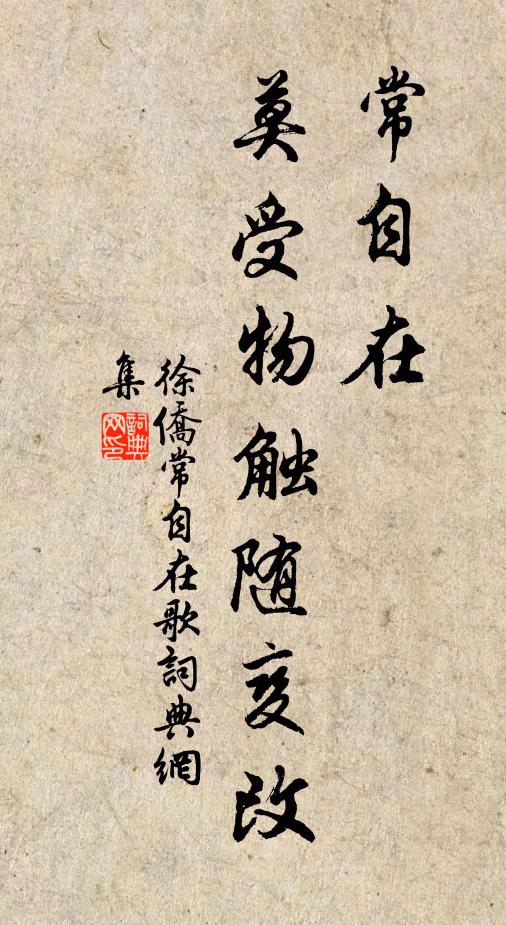 常自在
莫受物触随变改
徐僑常自在歌詞典網
集
詞典
网印